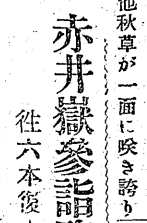 他秋草が一面に咲き誇り
赤井嶽參詣
往六本復